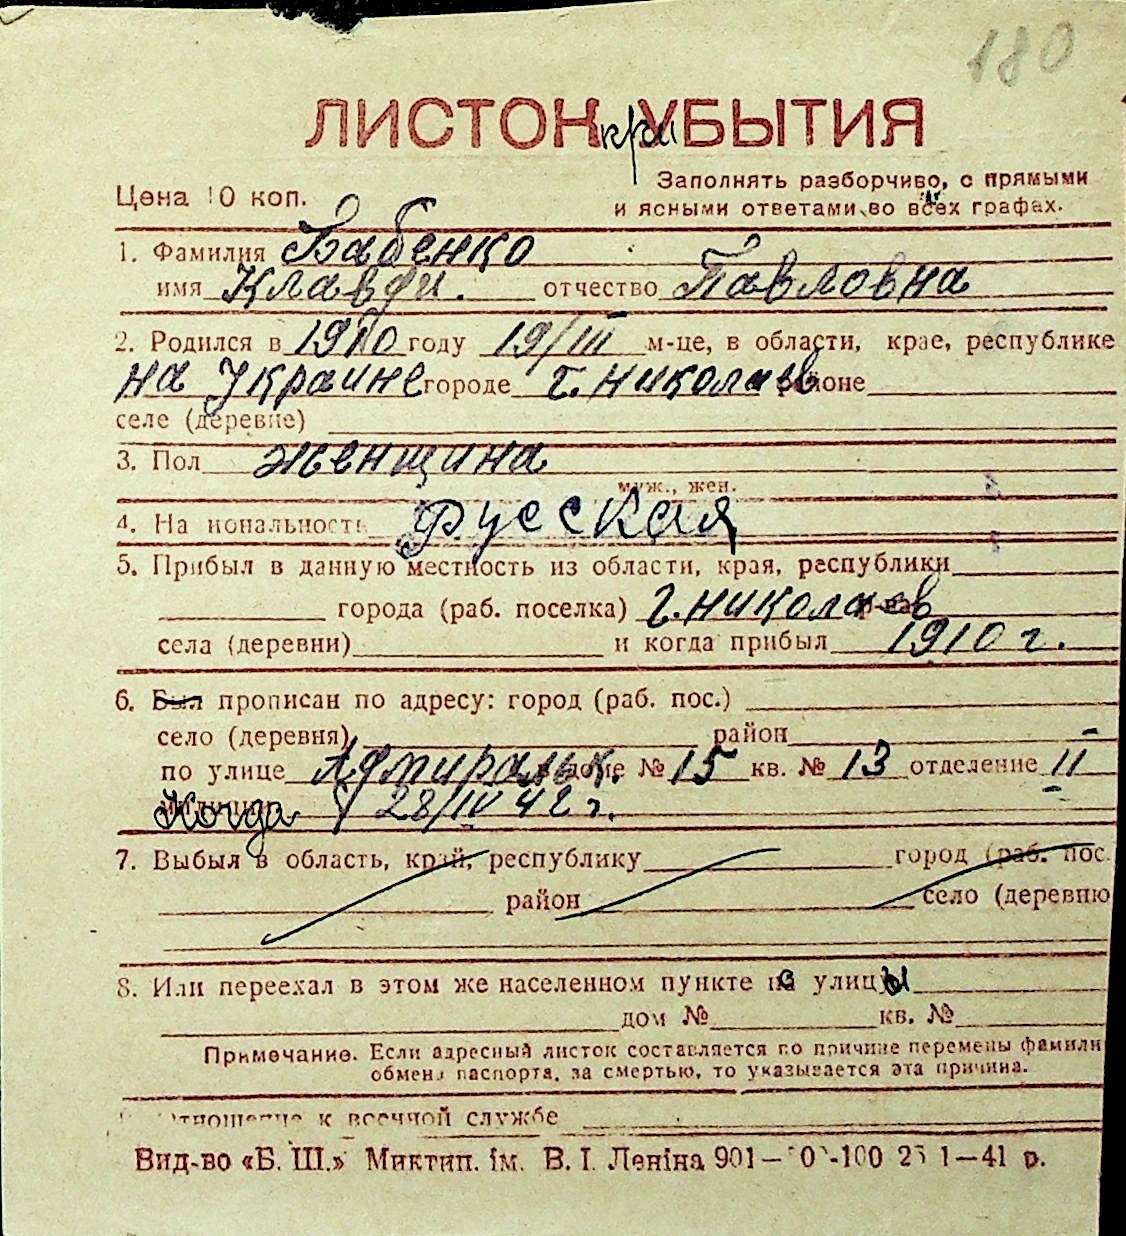 180
ЛИСТОК при УБЫТИЯ
Цена 10 коп.
Заполнять разборчиво, с прямыми
и ясными ответами во всех графах.
1. Фамилия Бабенко
имя Клавди. отчество Павловна
2. Родился в 1910 году 19/III м-це, в области, крае, республике
на Украине городе г. Николаев районе
селе (деревне)
3. Пол женщина
муж., жен.
4. Национальность русская
5. Прибыл в данную местность из области, края, республики
города (раб. поселка) г. Николаев
села (деревни) и когда прибыл 1910 г.
6. Был прописан по адресу: город (раб. пос.)
село (деревня) район
по улице Адмиральск. доме № 15 кв. № 13 отделение II
Когда 28/IV 42 г.
7. Выбыл в область, край, республику город (раб. пос.
район село (деревню
8. Или переехал в этом же населенном пункте с улицы
дом № кв. №
Примечание. Если адресный листок составляется по причине перемены фамили
обмена паспорта, за смертью, то указывается эта причина.
отношение к военной службе
Вид-во «Б. Ш.» Миктип. ім. В. І. Леніна 901— -100 1—41 р.